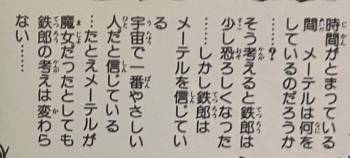 時間がとまっている
間　メーテルは何を
しているのだろうか
……？
そう考えると鉄郎は
少し恐ろしくなった
……しかし鉄郎は
メーテルを信じてい
る
宇宙で一番やさしい
人だと信じている
……たとえメーテルが
魔女だったとしても
鉄郎の考えは変わら
ない……